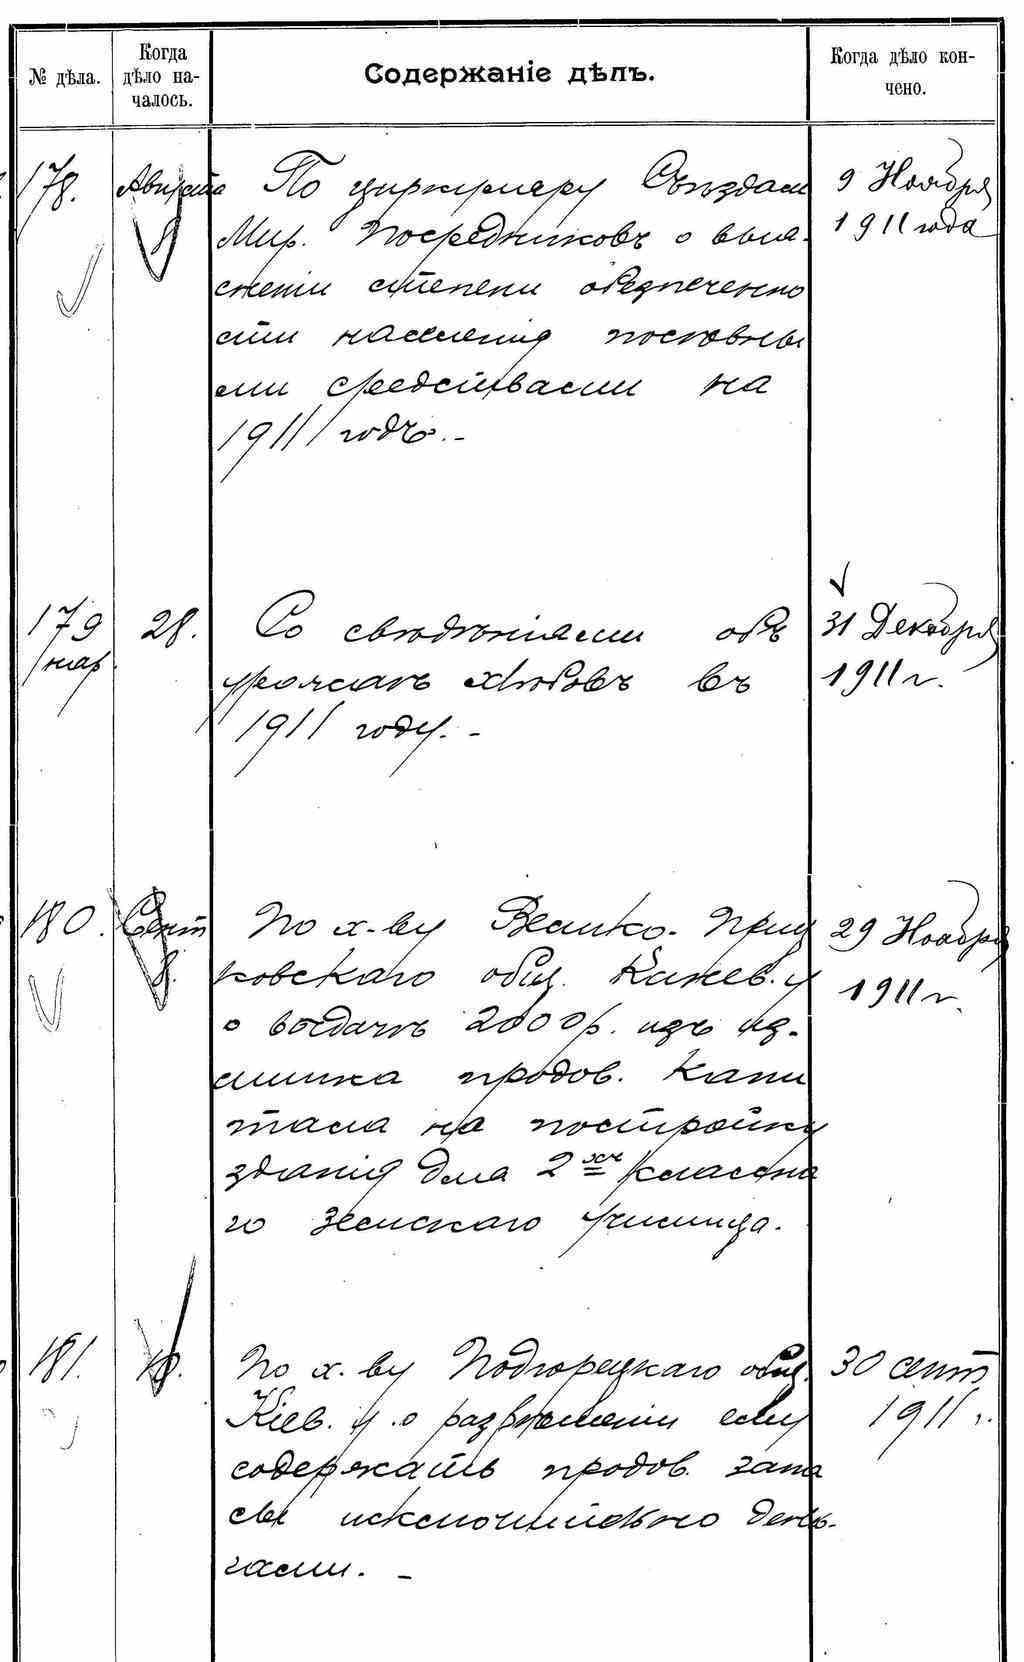 № дѣла.
Когда
дѣло на-
чалось.
Содержаніе дѣлъ.
Когда дѣло кон-
чено.
178.
Августа
8
По циркуляру Съѣздам
Мир. Посредниковъ о выя-
сненіи степени обезпеченно
сти населенія посѣвны
ми средствами на
1911 годъ. -
9 Ноября
1911 года
179
28.
Со свѣдѣніями объ
урожаѣ хлѣбовъ въ
1911 году. -
31 Декабря
1911 г.
180.
Сент
8.
По х-ву Велико-Приц
ковскаго общ. Канев. у
о выдачѣ 2000 р. изъ из-
лишка продов. капи
тала на постройку
зданія для 2хъ классна
го земскаго училища.
29 Ноября
1911 г.
181.
10.
По х-ву Подгорецкаго общ.
Кіев. у. о разрѣшеніи ему
содержать продов. запа
сы исключительно день-
гами. -
30 сент
1911 г.